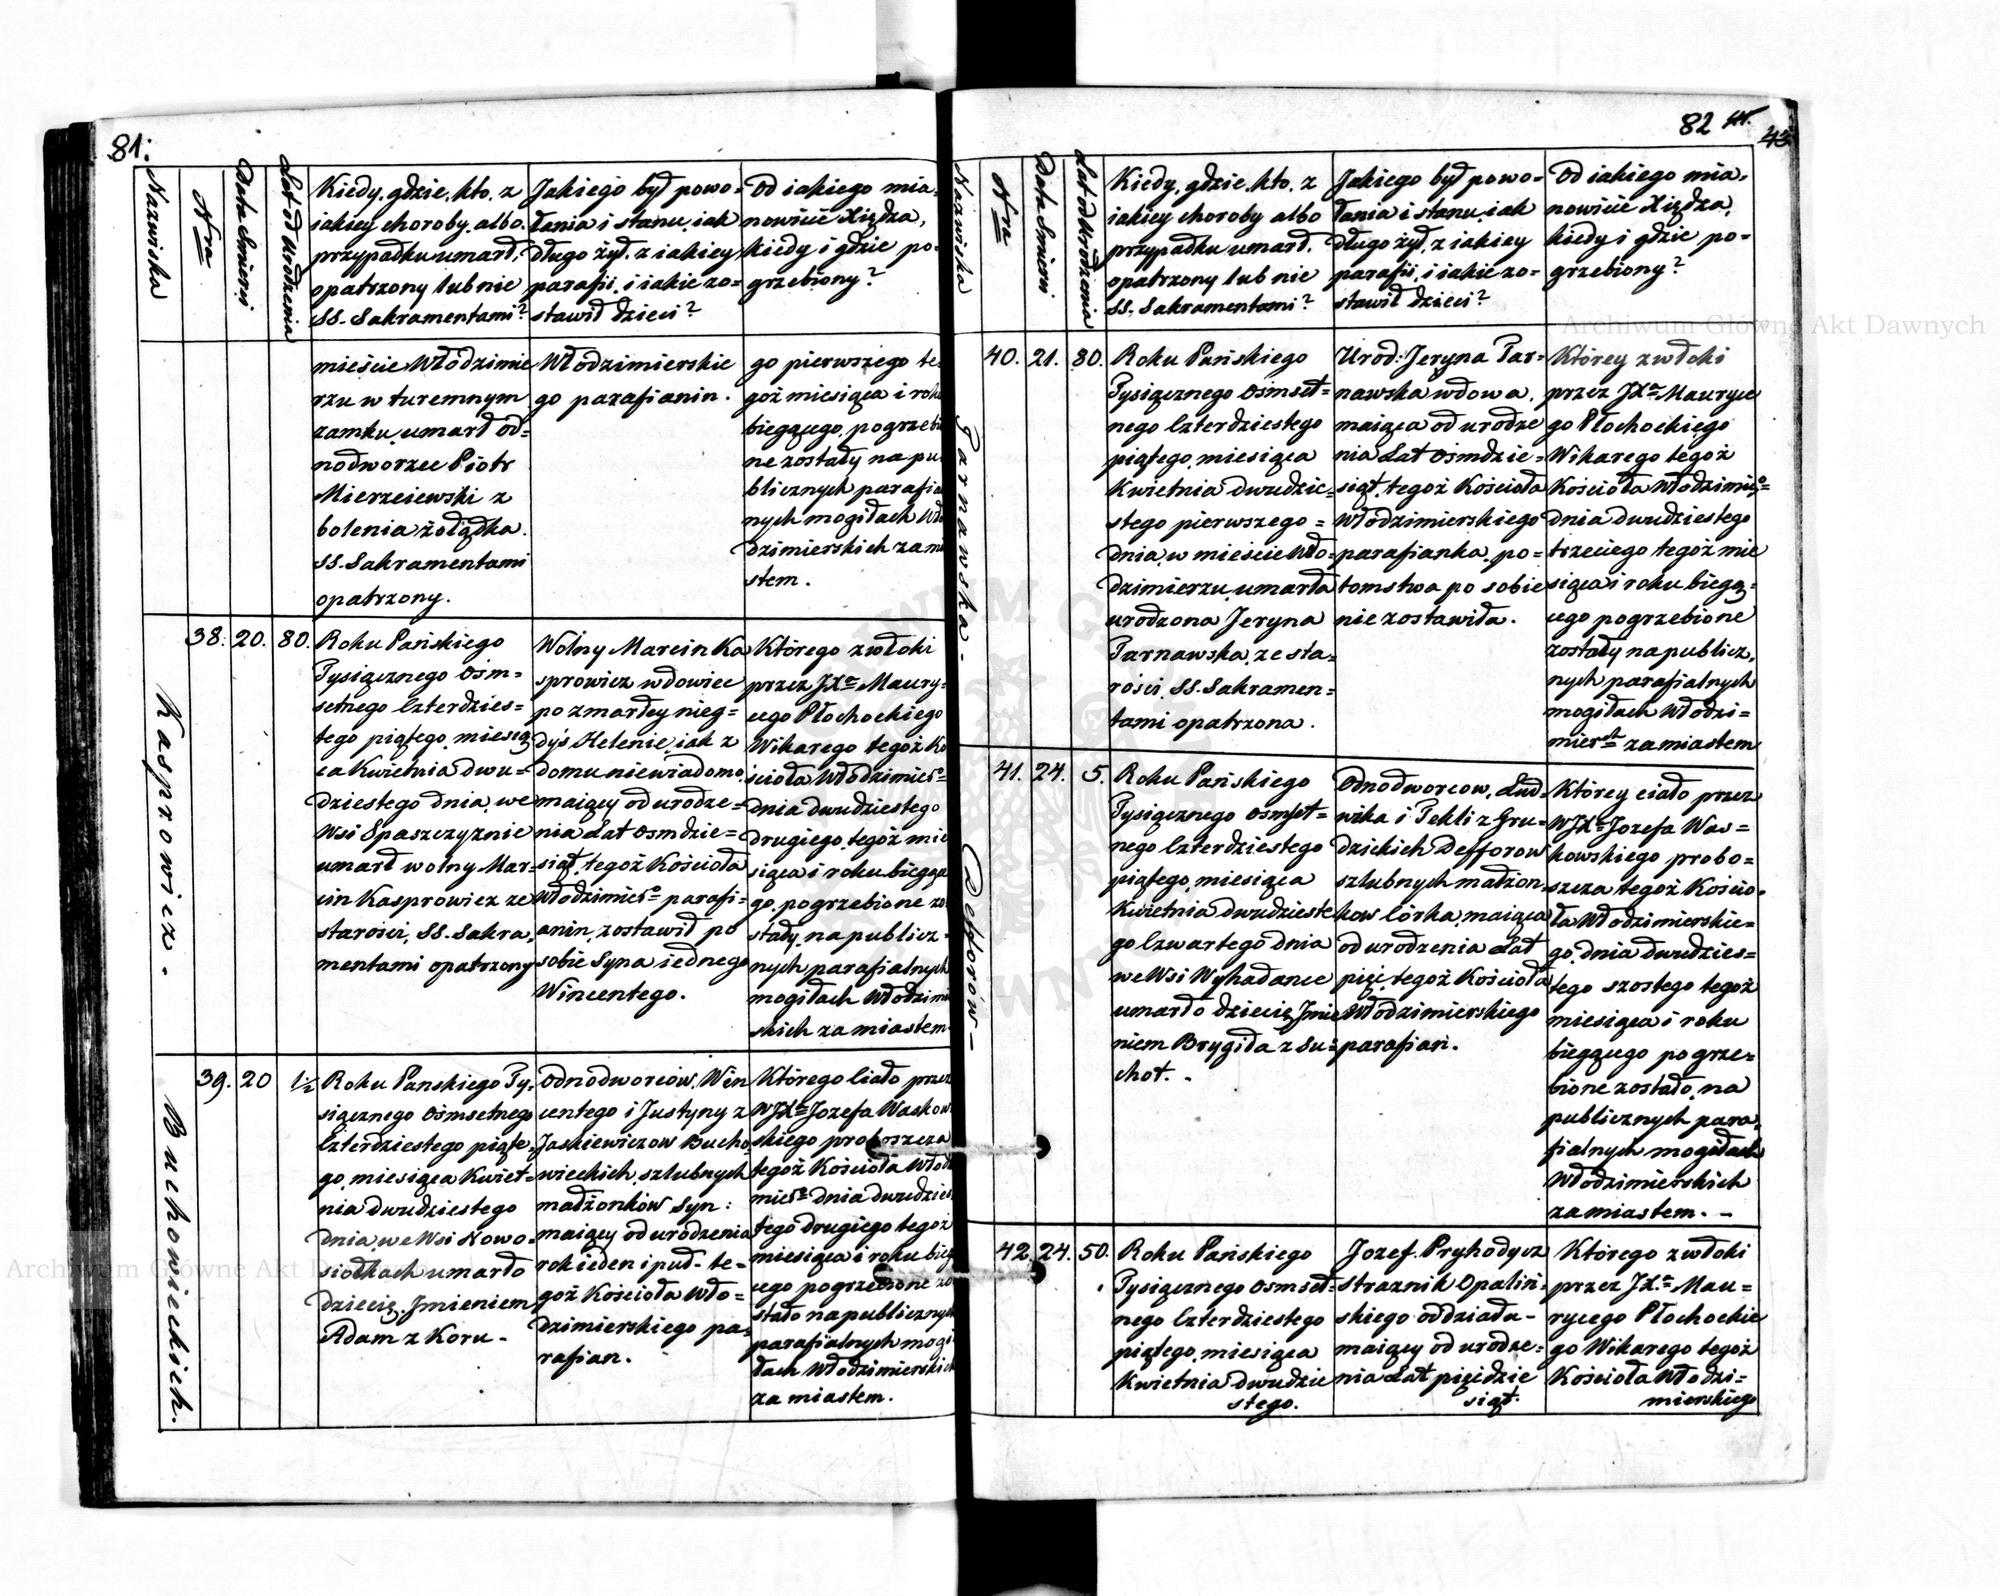 81.
Nazwiska
Nra
Data Śmierci
Lat od Urodzenia
Kiedy, gdzie, kto, z
iakiey choroby, albo
przypadku umarł,
opatrzony lub nie
SS. Sakramentami?
Jakiego był powo-
łania i stanu, iak
długo żył, z iakiey
parafii, i iakie zo-
stawił dzieci?
Od iakiego mia-
nowicie Xiędza,
kiedy i gdzie po-
grzebiony?
mieście Włodzimie
rzu w turemnym
zamku, umarł od=
nodworzec Piotr
Mierzeiewski z
bolenia żołądka.
SS. Sakramentami
opatrzony.
Włodzimierskie
go parafianin.
go pierwszego te-
goż miesiąca i roku
biegącego, pogrzebio
ne zostały na pu
blicznych parafial
nych mogiłach Wło
dzimierskich za mia
stem.
Kasprowicz.
38. 20. 80.
Roku Pańskiego
Tysiącznego Ośm=
setnego Czterdzies=
tego piątego, miesią
ca Kwietnia dwu=
dziestego dnia, we
Wsi Spaszczyznie
umarł wolny Mar=
cin Kasprowicz ze
starości, SS. Sakra,
mentami opatrzony
Wolny Marcin Ka
sprowicz wdowiec
po zmarłey nieg=
dyś Helenie, iak z
domu niewiadomo,
maiący od urodze=
nia Lat osmdzie=
siąt, tegoż Kościoła
Włodzimier° parafi=
anin, zostawił po
sobie Syna iednego
Wincentego.
Którego zwłoki
przez JXa Maury=
cego Płochockiego
Wikarego tegoż Ko
ścioła Włodzimier°
dnia dwudziestego
drugiego, tegoż mie
siąca i roku bieżące
go, pogrzebione zo
stały, na publicz=
nych parafialnych
mogiłach Włodzimier
skich za miastem
Buchowieckich.
39. 20 1½
Roku Panskiego Ty,
siącznego Ośmsetnego
Czterdziestego piąte,
go, miesiąca Kwiet=
nia dwudziestego
dnia, we Wsi Nowo-
siołkach umarło
dziecię, Jmieniem
Adam z Koru -
Odnodworców, Win
centego i Justyny z
Jaskiewiczow Bucho,
wieckich, szlubnych
małżonków Syn:
maiący od urodzenia
rok ieden i puł - te=
goż Kościoła Wło=
dzimierskiego pa,
rafian.
Którego Ciało przez
WJXa Jozefa Waskow
skiego proboszcza
tegoż Kościoła Włodzi
mier° dnia dwudzies
tego drugiego tegoż
miesiąca i roku bieg
cego pogrzebione zo
stało na publicznych
parafialnych mogi
łach Włodzimierskich
za miastem.
82
43
Nazwiska
Nra
Data Śmierci
Lat od Urodzenia
Kiedy, gdzie, kto, z
iakiey choroby albo
przypadku umarł,
opatrzony lub nie
SS. Sakramentami?
Jakiego był powo=
łania i stanu, iak
długo żył, z iakiey
parafii, i iakie zo-
stawił dzieci?
Od iakiego mia,
nowicie Xiędza,
kiedy i gdzie po=
grzebiony?
Tarnawska.
40. 21. 80.
Roku Pańskiego
Tysiącznego Osmset=
nego Czterdziestego
piątego, miesiąca
Kwietnia dwudzie=
stego pierwszego =
dnia, w mieście Wło=
dzimierzu, umarła
urodzona Jeryna
Tarnawska, ze sta=
rości, SS. Sakramen=
tami opatrzona.
Urod: Jeryna Tar=
nawska wdowa,
maiąca od urodze
nia Lat Osmdzie=
siąt, tegoż Kościoła
Włodzimierskiego
parafianka, po=
tomstwa po sobie
nie zostawiła.
Którey zwłoki
przez JXa Mauryce
go Płochockiego
Wikarego tegoż
Kościoła Włodzimier°=
dnia dwudziestego
trzeciego tegoż mie
siąca i roku biegą=
cego pogrzebione
zostały na publicz,
nych parafialnych
mogiłach Włodzi=
mierch za miastem
Defforów -
41. 24. 5.
Roku Pańskiego
Tysiącznego Osmset=
nego Czterdziestego
piątego, miesiąca
Kwietnia dwudzieste
go Czwartego dnia
we Wsi Wyhadance
umarło dziecię Jmie
niem Brygida z Su=
chot. -
Odnodworcow, Lud=
wika i Tekli z Gru=
dzickich Defforow
szlubnych małżon,
kow Córka, maiąca
od urodzenia Lat
pięć, tegoż Kościoła
Włodzimierskiego
parafian.
Którey ciało przez
WJXa Jozefa Was=
kowskiego probo=
szcza tegoż Kościo=
ła Włodzimierskie=
go, dnia dwudzies=
tego szostego tegoż
miesiąca i roku
bieggcego pogrze=
bione zostało, na
publicznych para,
fialnych mogiłach
Włodzimierskich
za miastem. -
42. 24. 50.
Roku Pańskiego
Tysiącznego Osmset=
nego Czterdziestego
piątego, miesiąca
Kwietnia dwudzie
stego.
Jozef Pryhodycz
Straznik Opaliń,
skiego oddziału -
maiący od urodze=
nia Lat pięćdzie
siąt.
Którego zwłoki
przez JXa Mau=
rycego Płochockie
go Wikarego tegoż
Kościoła Włodzi=
mierskiego
Archiwum Główne Akt Dawnych
Archiwum Główne Akt Dawnych